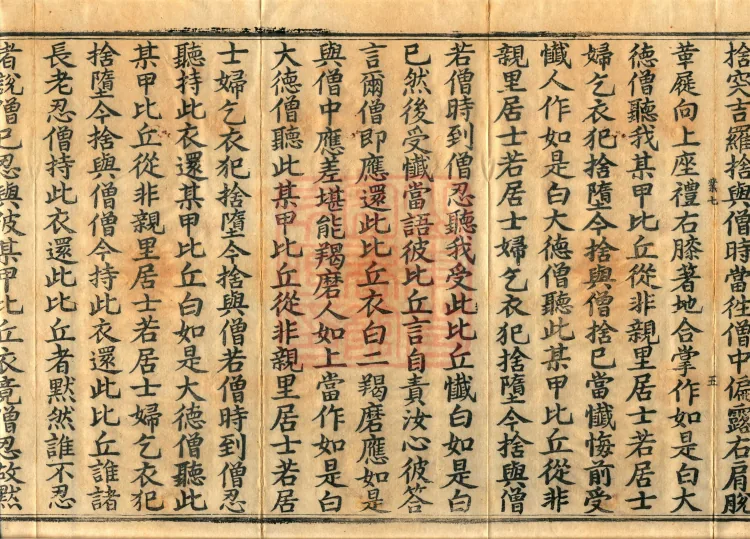 捨突吉羅捨與僧時當徃僧中偏露右肩脫
業七 五
革屣向上座禮右膝著地合掌作如是白大
德僧聽我某甲比丘從非親里居士若居士
婦乞衣犯捨墮今捨與僧捨已當懺悔前受
懺人作如是白大德僧聽此某甲比丘從非
親里居士若居士婦乞衣犯捨墮今捨與僧
若僧時到僧忍聽我受此比丘懺白如是白
已然後受懺當語彼比丘言自責汝心彼答
言爾僧即應還此比丘衣白二羯磨應如是
與僧中應差堪能羯磨人如上當作如是白
大德僧聽此某甲比丘從非親里居士若居
士婦乞衣犯捨墮今捨與僧若僧時到僧忍
聽持此衣還某甲比丘白如是大德僧聽此
某甲比丘從非親里居士若居士婦乞衣犯
捨墮今捨與僧僧今持此衣還此比丘誰諸
長老忍僧持此衣還此比丘者默然誰不忍
者說僧已忍與彼某甲比丘衣竟僧忍故默